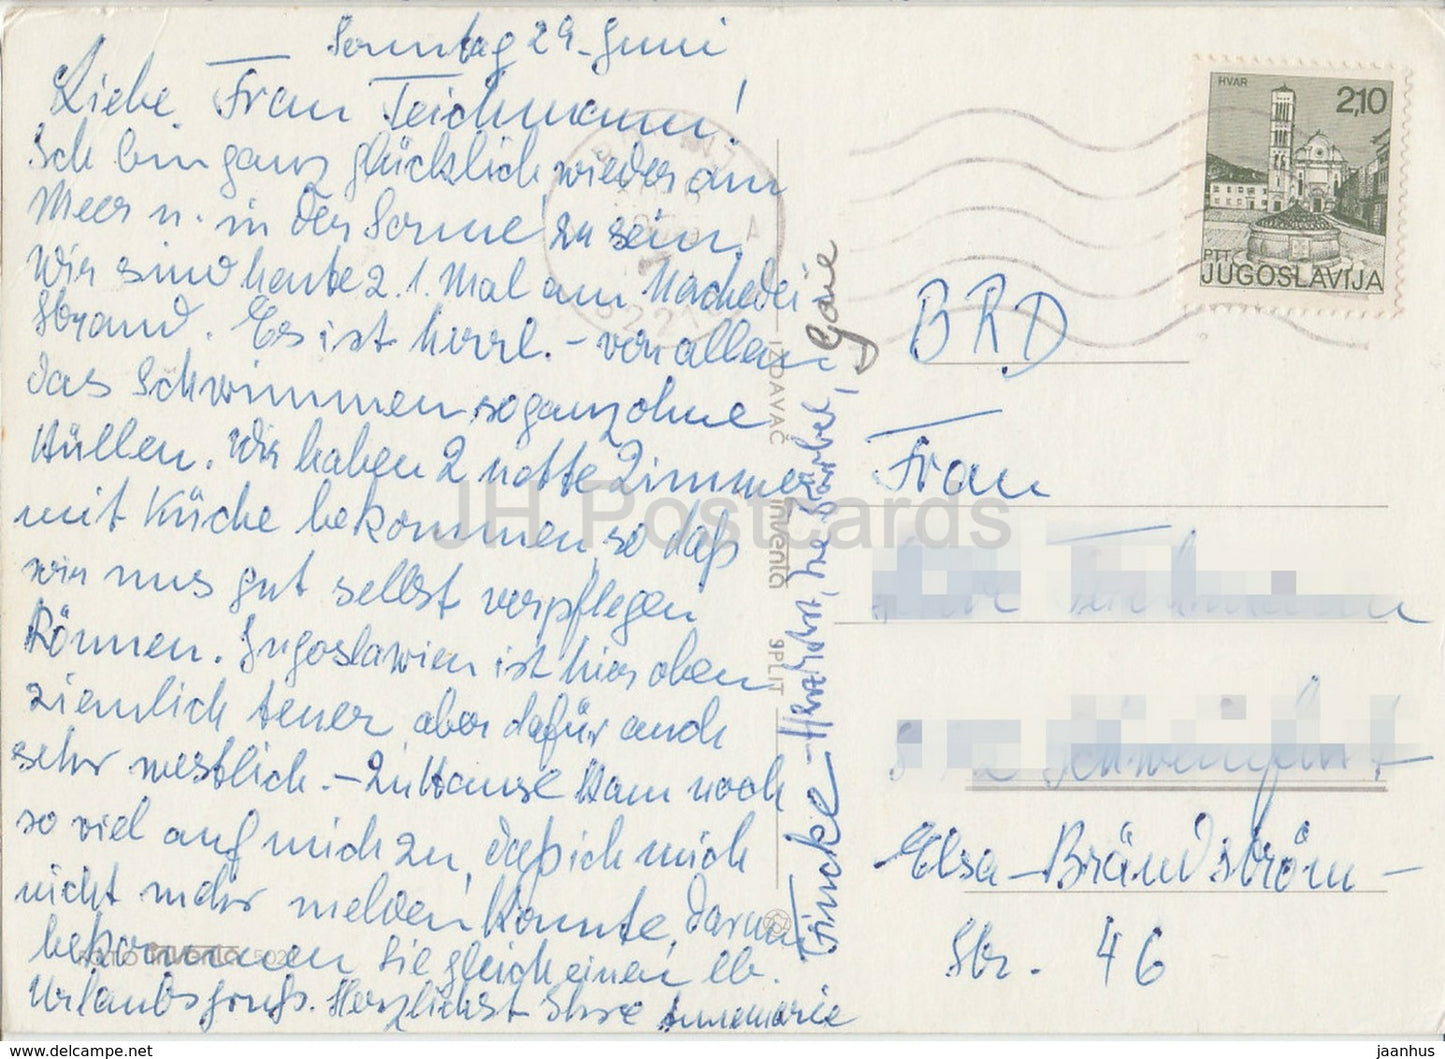 Sonntag 29. Juni
Liebe Frau Teichmann!
Ich bin ganz glücklich, wieder am
Meer u. in der Sonne zu sein.
Wir sind heute 2. 1. Mal am Nackedei-
strand. Es ist herrl. – vor allem
das Schwimmen so ganz ohne
Hüllen. Wir haben 2 nette Zimmer
mit Küche bekommen, so daß
wir uns gut selbst verpflegen
können. Jugoslawien ist hier oben
ziemlich teuer aber dafür auch
sehr westlich. – Zu Hause kam noch
so viel auf mich zu, daß ich mich
nicht mehr melden konnte, darum
bekommen Sie gleich einen lb.
Urlaubsgruß. Herzlichst Ihre Annemarie
Fincke
HVAR
2,10
PTT
JUGOSLAVIJA
BRD
Frau
Elsa-Brändström-
Str. 46
IZDAVAČ inventa SPLIT
FOTO inventa 502
52210
JH Postcards
www.delcampe.net
jaanhus